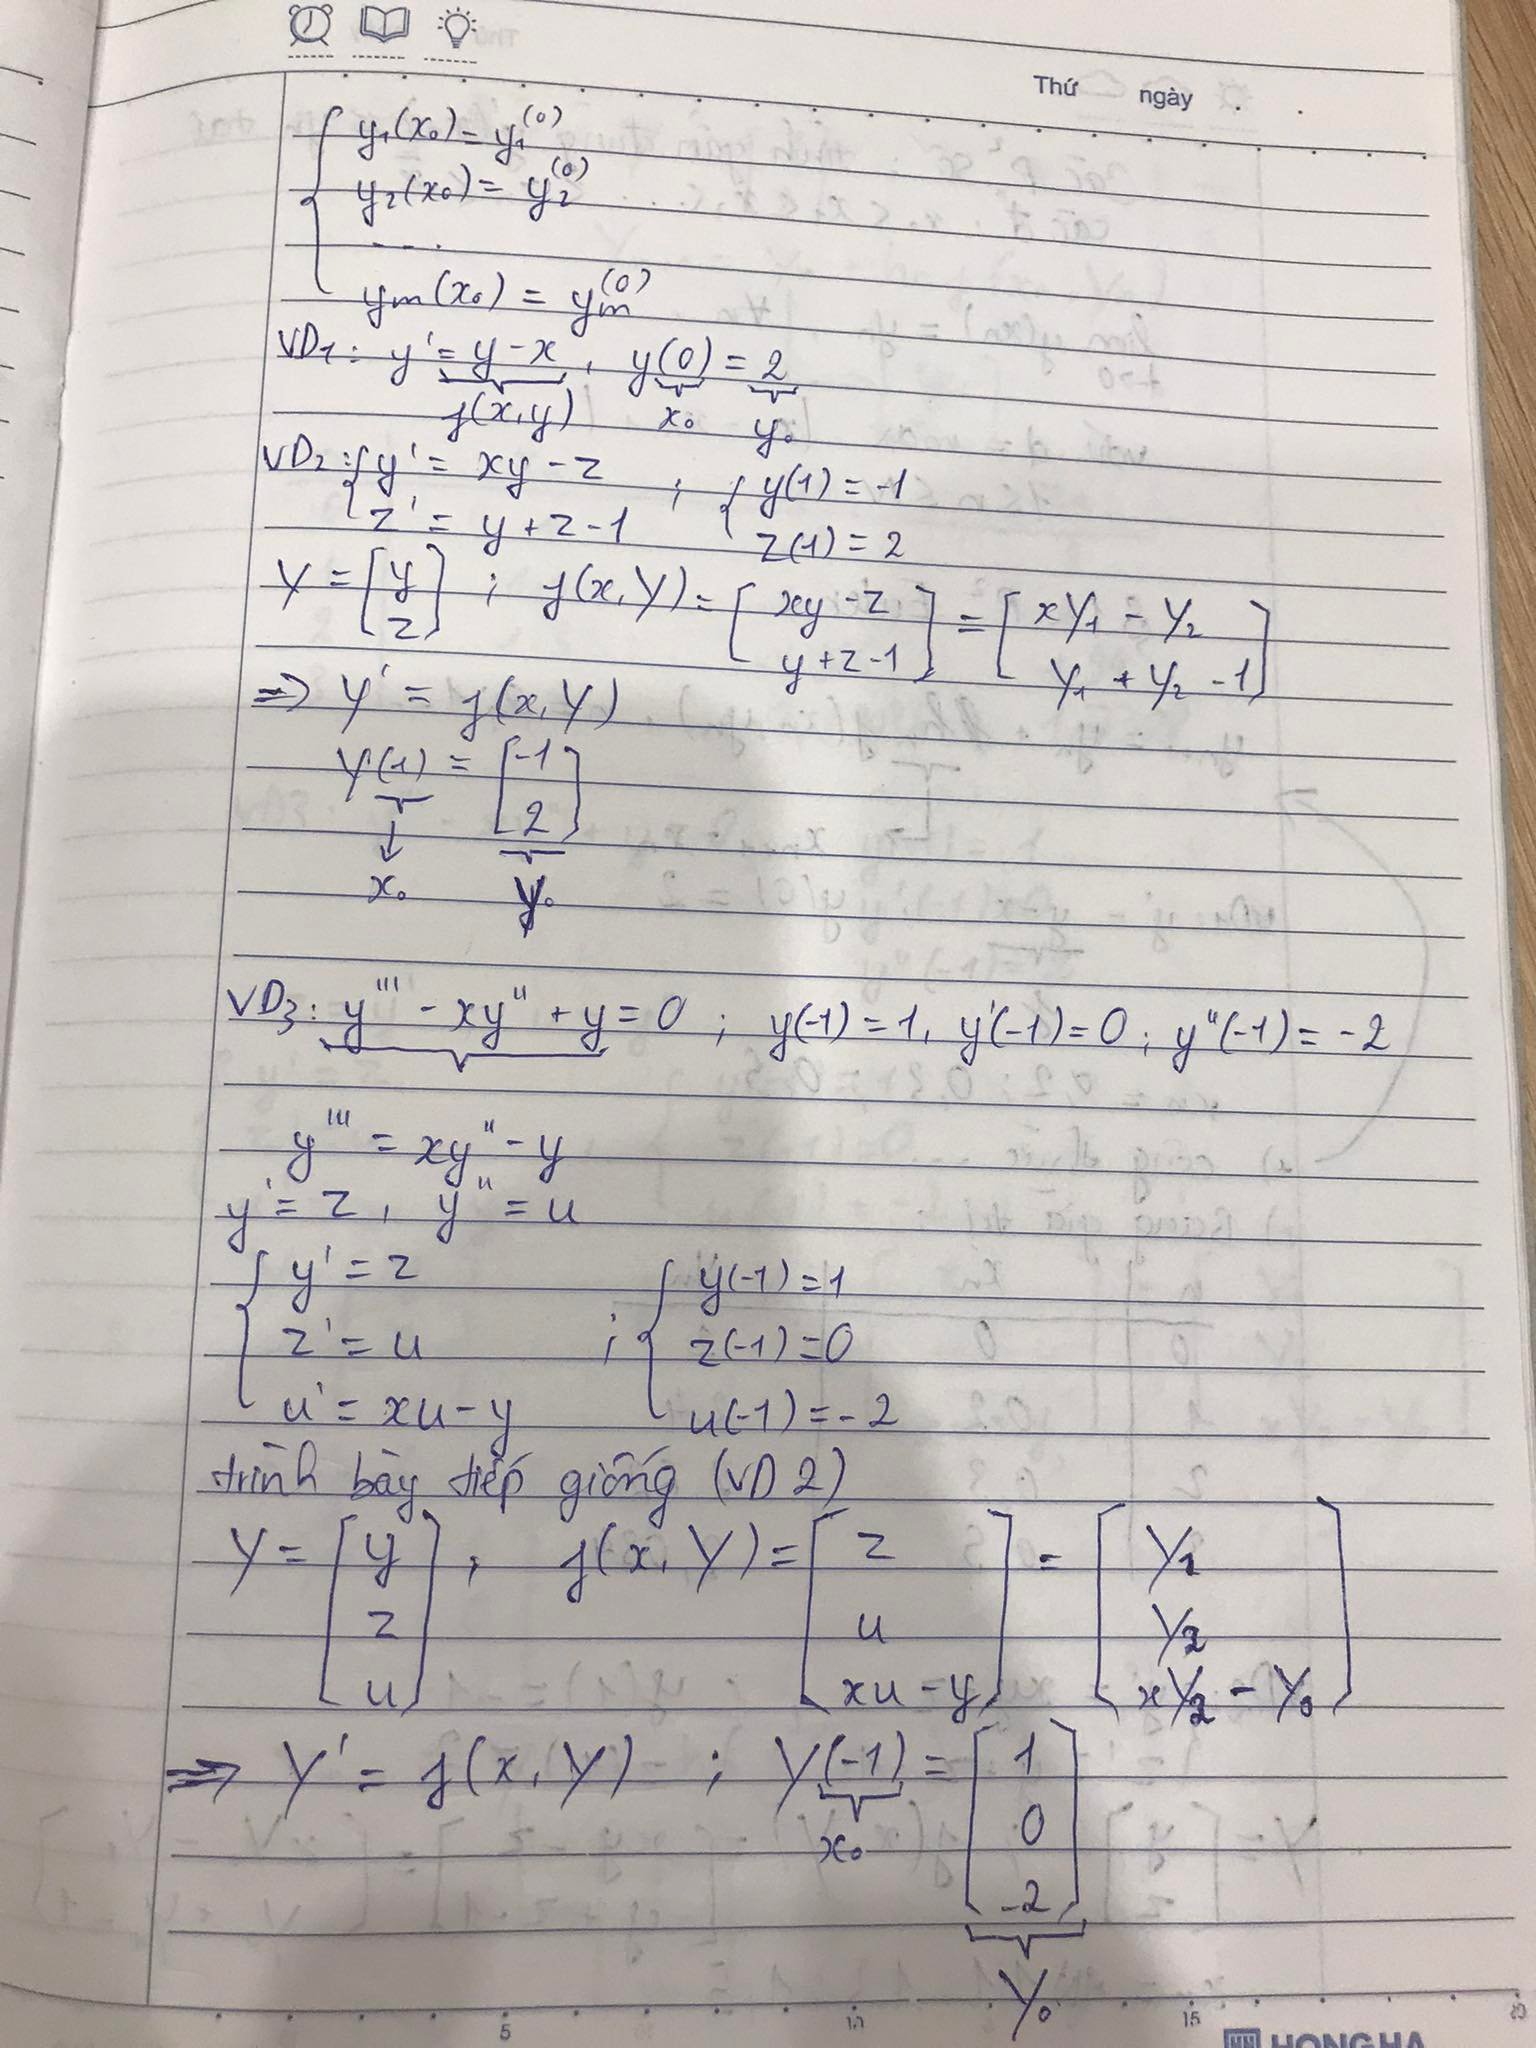 Thứ ngày
y₁(x₀) = y₁⁽⁰⁾
y₂(x₀) = y₂⁽⁰⁾
....
yₘ(x₀) = yₘ⁽⁰⁾
VD1: y' = y - x , y(0) = 2
f(x,y) x₀ y₀
VD2: { y' = xy - z ; { y(1) = -1
z' = y + z - 1 z(1) = 2
Y = [y z] ; f(x,Y) = [xy - z y + z - 1] = [xY₁ - Y₂ Y₁ + Y₂ - 1]
=> Y' = f(x,Y)
Y(1) = [-1 2]
↓
x₀ Y₀
VD3: y''' - xy'' + y = 0 ; y(-1) = 1, y'(-1) = 0 ; y''(-1) = -2
y''' = xy'' - y
y' = z , y'' = u
{ y' = z { y(-1) = 1
z' = u ; z(-1) = 0
u' = xu - y u(-1) = -2
trình bày tiếp giống (VD2)
Y = [y z u] , f(x,Y) = [z u xu - y] = [Y₁ Y₂ xY₂ - Y₀]
=> Y' = f(x,Y) ; Y(-1) = [1 0 -2]
x₀
Y₀
5 10 15 20
HONG HA